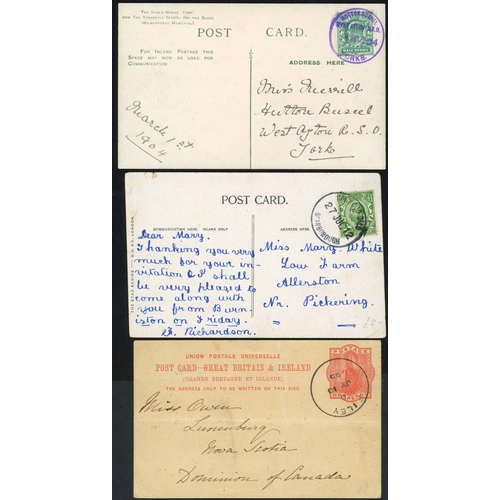 THE KING'S MANOR, YORK
NOW THE YORKSHIRE SCHOOL FOR THE BLIND
(WILBERFORCE MEMORIAL)
POST CARD.
FOR INLAND POSTAGE THIS
SPACE MAY NOW BE USED FOR
COMMUNICATION.
ADDRESS HERE
March 1st
1904
Miss Merrill
Hutton Buscel
West Ayton R.S.O.
York
POST CARD.
COMMUNICATION HERE, INLAND ONLY
ADDRESS HERE
SCARBOROUGH
27 JU 12
Dear Mary.
Thanking you very
much for your in-
vitation I shall
be very pleased to
come along with
you from Burn-
iston on Friday.
E. Richardson.
Miss Mary White
Low Farm
Allerston
Nr. Pickering.
UNION POSTALE UNIVERSELLE
POST CARD—GREAT BRITAIN & IRELAND
(GRANDE BRETAGNE ET IRLANDE)
THE ADDRESS ONLY TO BE WRITTEN ON THIS SIDE.
Miss Owen
Lunenburg
Nova Scotia
Dominion of Canada